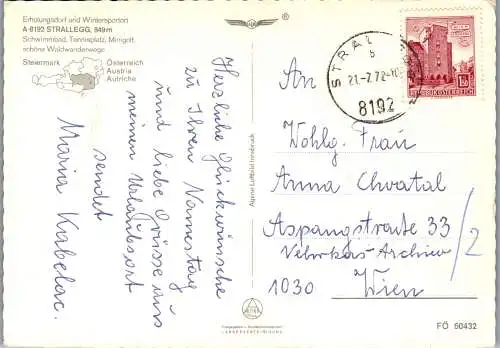 Erholungsdorf und Wintersportort
A-8192 STRALLEGG, 849m
Schwimmbad, Tennisplatz, Minigolf,
schöne Waldwanderwege
Steiermark
Österreich
Austria
Autriche
Herzliche Glückwünsche
zu Ihren Namenstag
und liebe Grüsse aus
meinen Urlaubsort
sendet
Maria Kabelac.
Alpine Luftbild Innsbruck
STRAL
b
21.-7.72-10
8192
REPUBLIK ÖSTERREICH
Wohlg. Frau
Anna Chvatal
Aspangstraße 33/2
Verkehrs-Archiv
1030 Wien
FÖ 50432